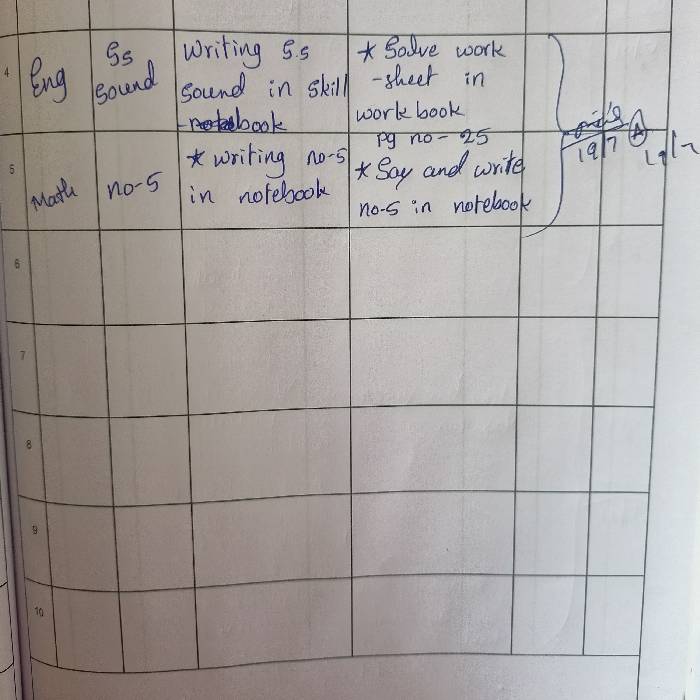 4
Eng
Ss
Sound
Writing S.s
sound in skill
-notebook
* Solve work
-sheet in
work book
pg no - 25
19/7
19/7
5
Math
no-5
* writing no-5
in notebook
* Say and write
no-5 in notebook
6
7
8
9
10